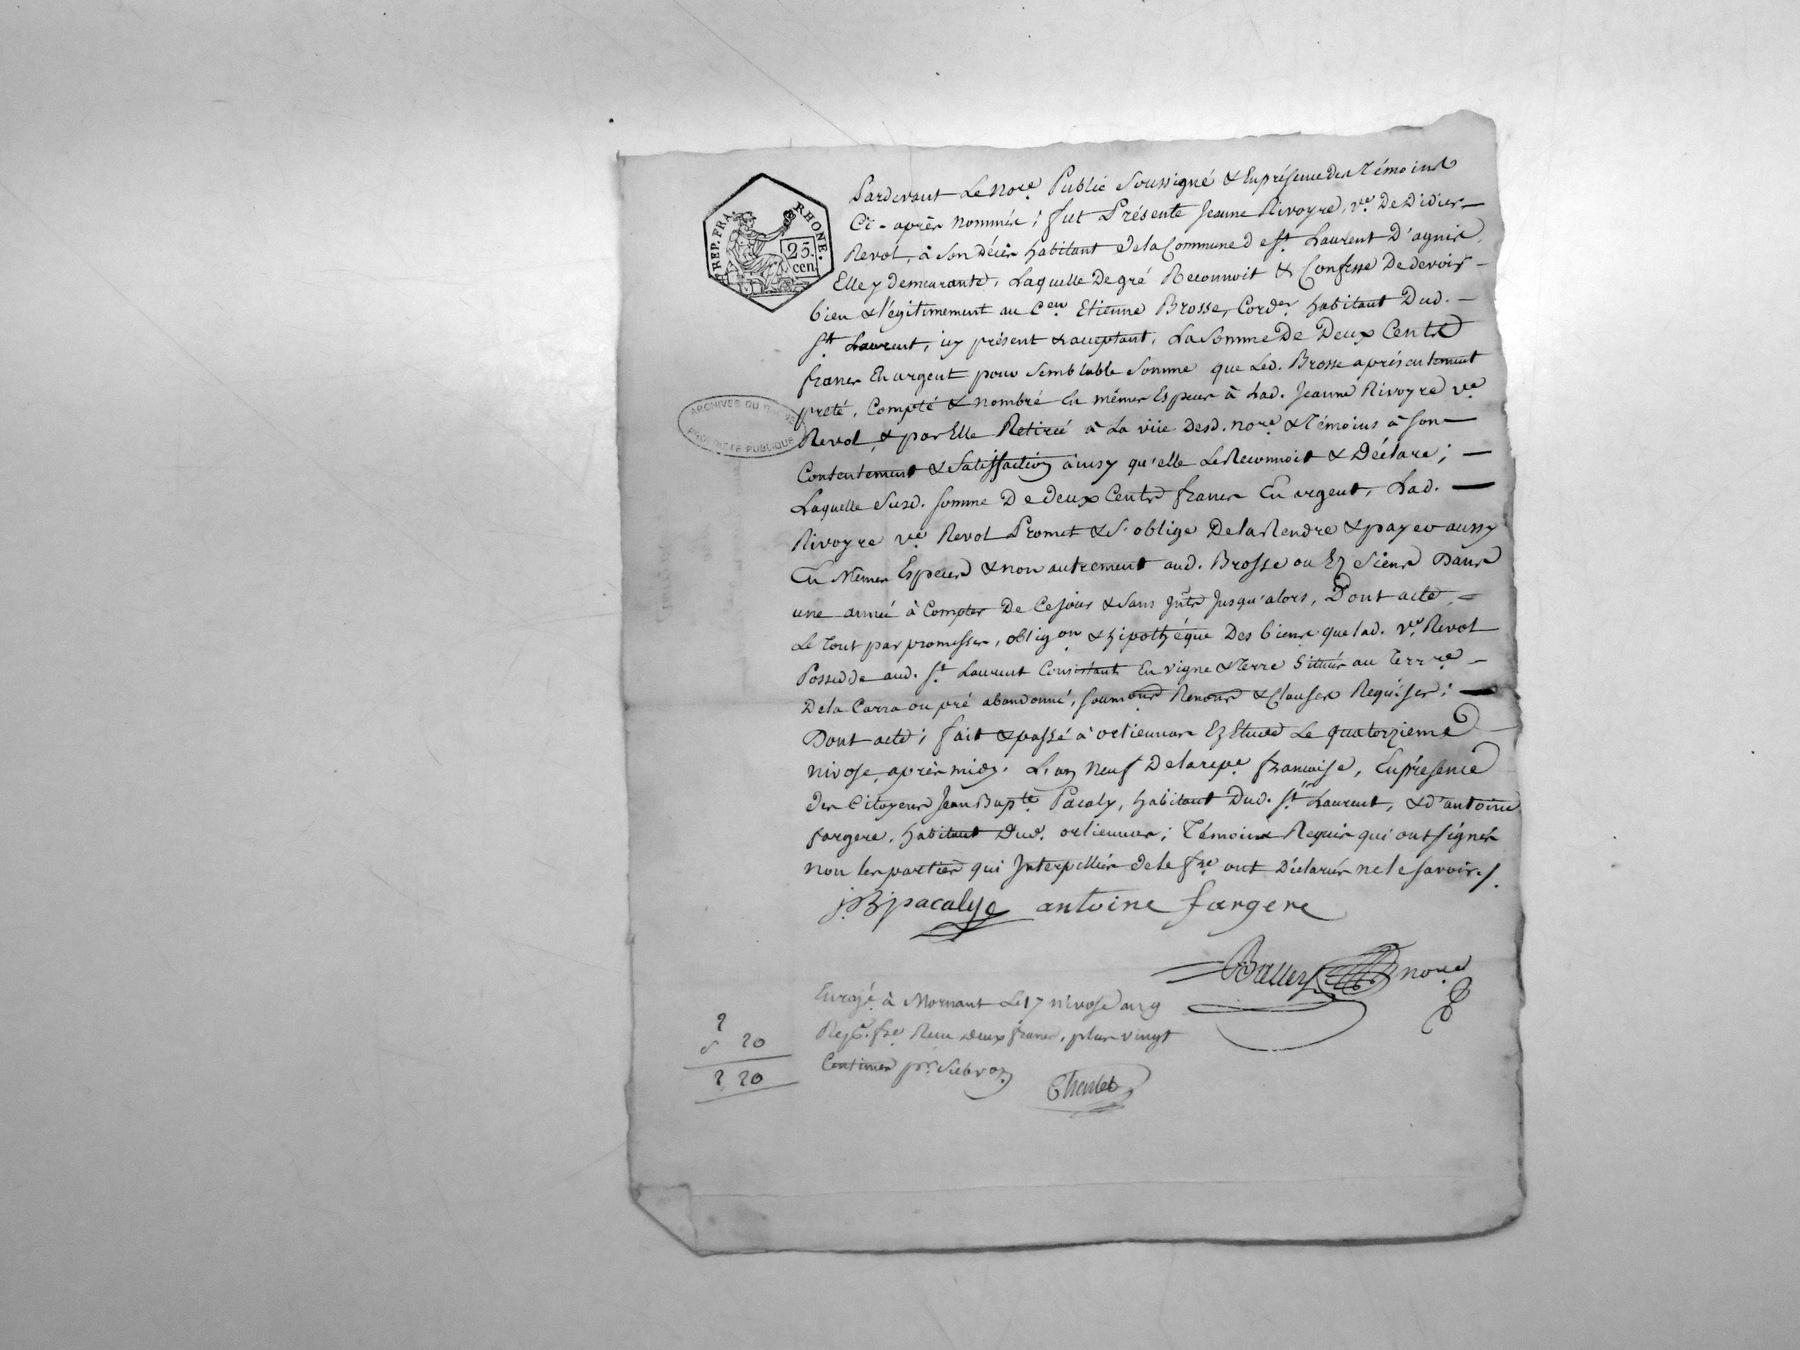 REP. FRA. RHONE.
25.
cen
ARCHIVES DU RHONE
PROPRIETE PUBLIQUE
Pardevant Le nore. Public Soussigné & En présence des Témoins
Ci-après nommés ; fut Présente Jeanne Rivoyre, ve. De Didier
Revol, à Son décès habitant de la Commune de St. Laurent D'agnis,
Elle y demeurante, Laquelle De gré Reconnoit & Confesse De devoir
bien & légitimement au Cen. Etienne Brosse, Corder. habitant Dud.
St. Laurent, icy présent & acceptant, La Somme De Deux Cents
francs En argent pour Semblable Somme que Led. Brosse a présentement
preté, Compté & nombré En mêmes Especes à Lad. Jeanne Rivoyre ve.
Revol, & par Elle Retiréé à La vüe Desd. nore. & Témoins à Son
Contentement & Satisfaction ainsy qu'elle Le Reconnoit & Déclare ;
Laquelle Susd. Somme De deux Cents francs En argent, Lad.
Rivoyre ve. Revol Promet & S'oblige De la Rendre & payer aussy
En Mêmes Especes & non autrement aud. Brosse ou Ez Siens Dans
une année à Compter De Ce jour & Sans Jnts. Jusqu'alors, Dont acte,
Le Tout par promesses, obligon. & hipothéque Des biens que lad. ve. Revol
Possedde aud. St. Laurent Consistants En vigne & Terre Situés au Terrre.
De la Carra ou pré abandonné, Soumons Renons & Clauses Requises ;
Dont acte ; fait & passé à orliennas Ez Etude Le quatorzieme
nivose, après midy, L'an Neuf De la repe. française, En présence
des Citoyens Jean Bapte. Pacaly, habitant Dud. St. Laurent, & d'antoine
fargere, habitant Dud. orliennas ; Témoins Requis qui ont Signés
non les parties qui Interpellées de le fre. ont Déclarés ne le Savoir.
jB pacalye antoine fargere
nore.
Enrgé. à Mornant Le 17 nivose an 9
Reçu deux francs, plus vingt
Centimes pr. Subvon.
Charlet
2
20
2 20